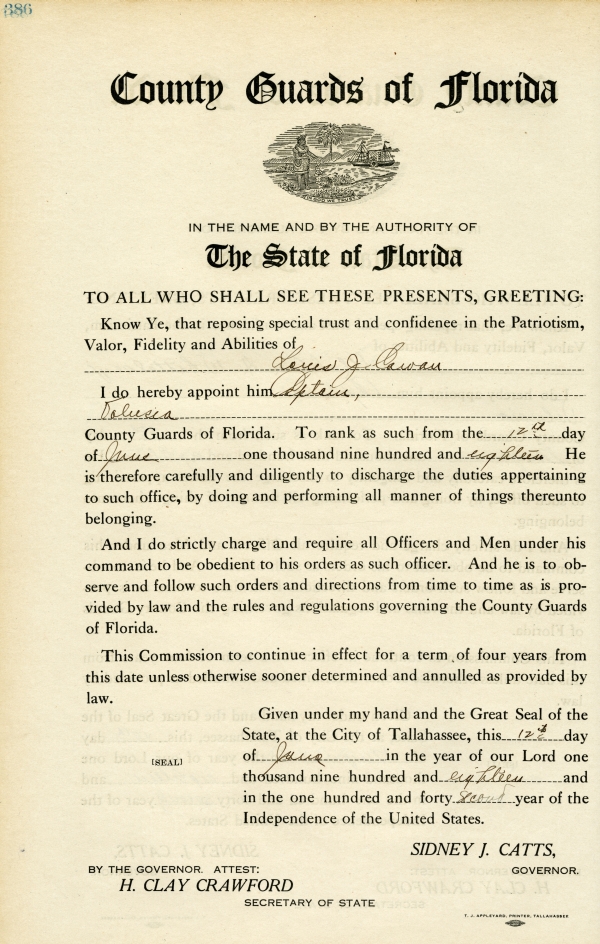 386
County Guards of Florida
IN GOD WE TRUST
IN THE NAME AND BY THE AUTHORITY OF
The State of Florida
TO ALL WHO SHALL SEE THESE PRESENTS, GREETING:
Know Ye, that reposing special trust and confidenee in the Patriotism,
Valor, Fidelity and Abilities of
Louis J. Cowan
I do hereby appoint him Captain,
Volusia
County Guards of Florida. To rank as such from the 12th day
of June one thousand nine hundred and eighteen He
is therefore carefully and diligently to discharge the duties appertaining
to such office, by doing and performing all manner of things thereunto
belonging.
And I do strictly charge and require all Officers and Men under his
command to be obedient to his orders as such officer. And he is to ob-
serve and follow such orders and directions from time to time as is pro-
vided by law and the rules and regulations governing the County Guards
of Florida.
This Commission to continue in effect for a term of four years from
this date unless otherwise sooner determined and annulled as provided by
law.
Given under my hand and the Great Seal of the
State, at the City of Tallahassee, this 12th day
[SEAL] of June in the year of our Lord one
thousand nine hundred and eighteen and
in the one hundred and forty second year of the
Independence of the United States.
SIDNEY J. CATTS,
BY THE GOVERNOR. ATTEST: GOVERNOR.
H. CLAY CRAWFORD
SECRETARY OF STATE
T. J. APPLEYARD, PRINTER, TALLAHASSEE